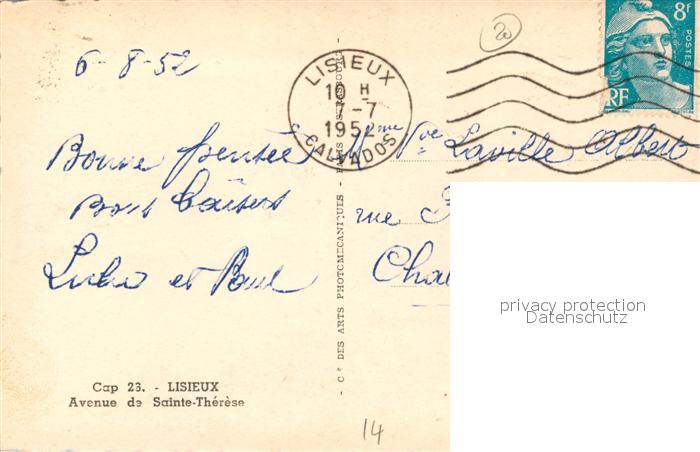 6-8-52
Bonne pensée
Bons baisers
et Paul
Cap 23. - LISIEUX
Avenue de Sainte-Thérèse
Cie DES ARTS PHOTOMECANIQUES -
LISIEUX
10 H
7-7
1952
CALVADOS
20
8f
POSTES
RF
Mme Vve Laville Albert
rue
14
privacy protection
Datenschutz